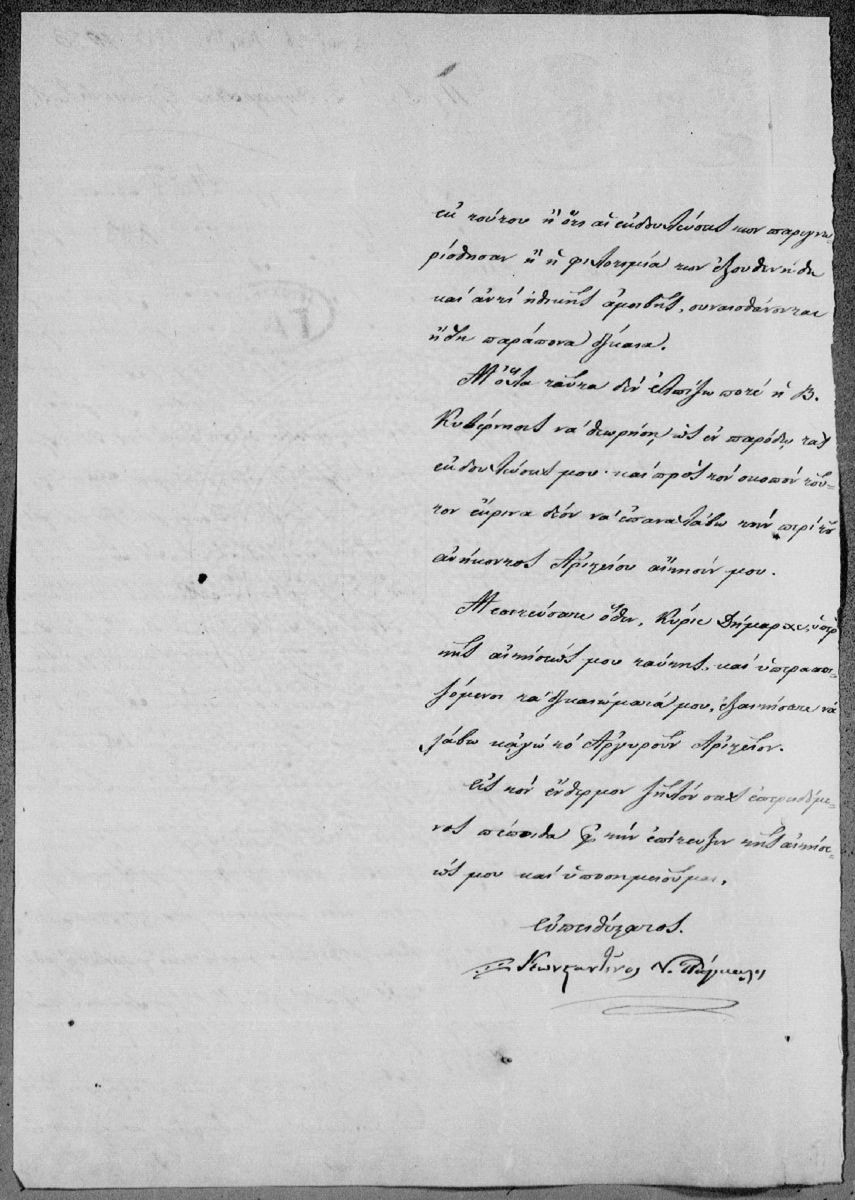 ἐκ τούτου ἢ ὅτι αἱ ἐκδουλεύσεις των παρεγνω-
ρίσθησαν ἢ ἡ φιλοτιμία των ἐξουθενήθη
καὶ ἀντὶ ἠθικῆς ἀμοιβῆς, συναισθάνονται
ἤδη παράπονα δίκαια.
Μ' ὅλα ταῦτα δὲν ἐλπίζω ποτὲ ἡ Β.
Κυβέρνησις νὰ θεωρήσῃ ὡς ἐν παρόδῳ τὰς
ἐκδουλεύσεις μου· καὶ πρὸς τὸν σκοπὸν τοῦ-
τον ἔκρινα δέον νὰ ἐπαναλάβω τὴν περὶ τοῦ
ἀνήκοντος Ἀριστείου αἴτησίν μου.
Μεσιτεύσατε ὅθεν, Κύριε Δήμαρχε, ὑπὲρ
τῆς αἰτήσεώς μου ταύτης, καὶ ὑπερασπι-
ζόμενοι τὰ δικαιώματά μου, ἐξαιτήσατε νὰ
λάβω κἀγὼ τὸ Ἀργυροῦν Ἀριστεῖον.
Εἰς τὸν ἔνθερμον ζῆλόν σας ἐπερειδόμε-
νος πέποιθα τὴν ἐπίτευξιν τῆς αἰτήσε-
ώς μου καὶ ὑποσημειοῦμαι.
εὐπειθέστατος
Κωνσταντῖνος Ν.